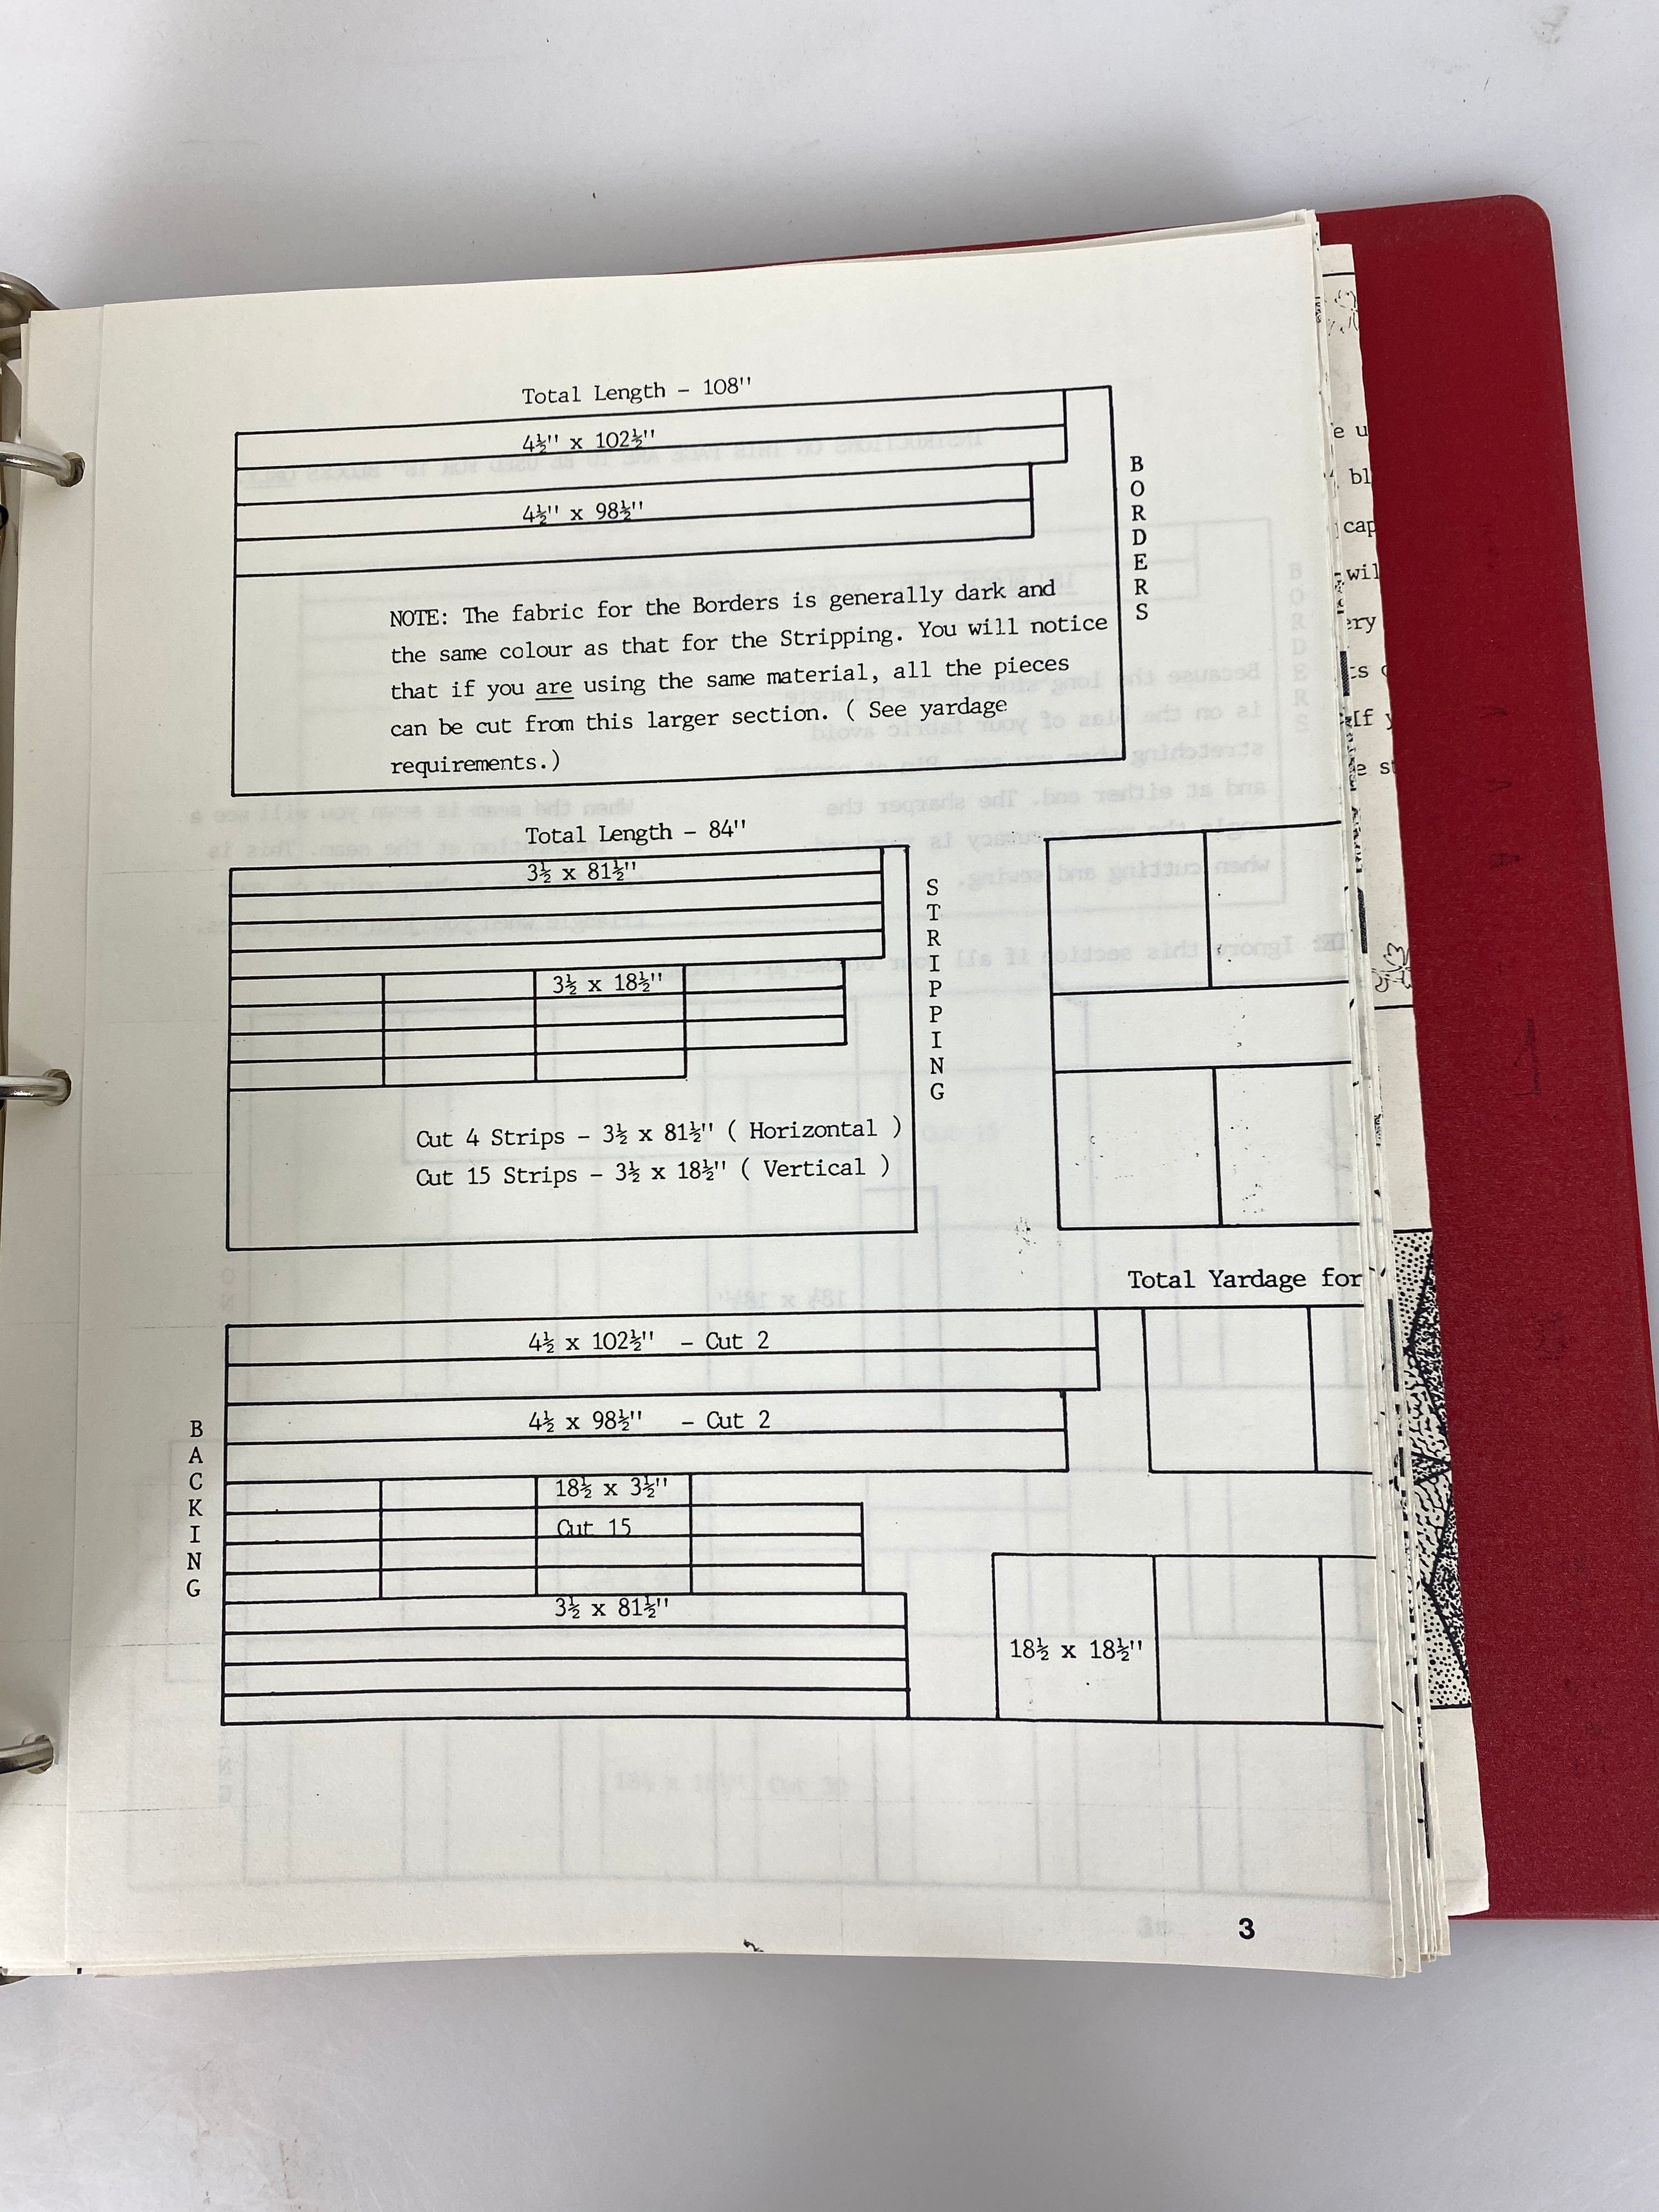 Total Length - 108"
4½" x 102½"
4½" x 98½"
BORDERS
NOTE: The fabric for the Borders is generally dark and
the same colour as that for the Stripping. You will notice
that if you are using the same material, all the pieces
can be cut from this larger section. ( See yardage
requirements.)
Total Length - 84"
3½ x 81½"
3½ x 18½"
STRIPPING
Cut 4 Strips - 3½ x 81½" ( Horizontal )
Cut 15 Strips - 3½ x 18½" ( Vertical )
Total Yardage for
4½ x 102½" - Cut 2
4½ x 98½" - Cut 2
BACKING
18½ x 3½"
Cut 15
3½ x 81½"
18½ x 18½"
3
e u
bl
cap
wil
ery
ts
If y
e st